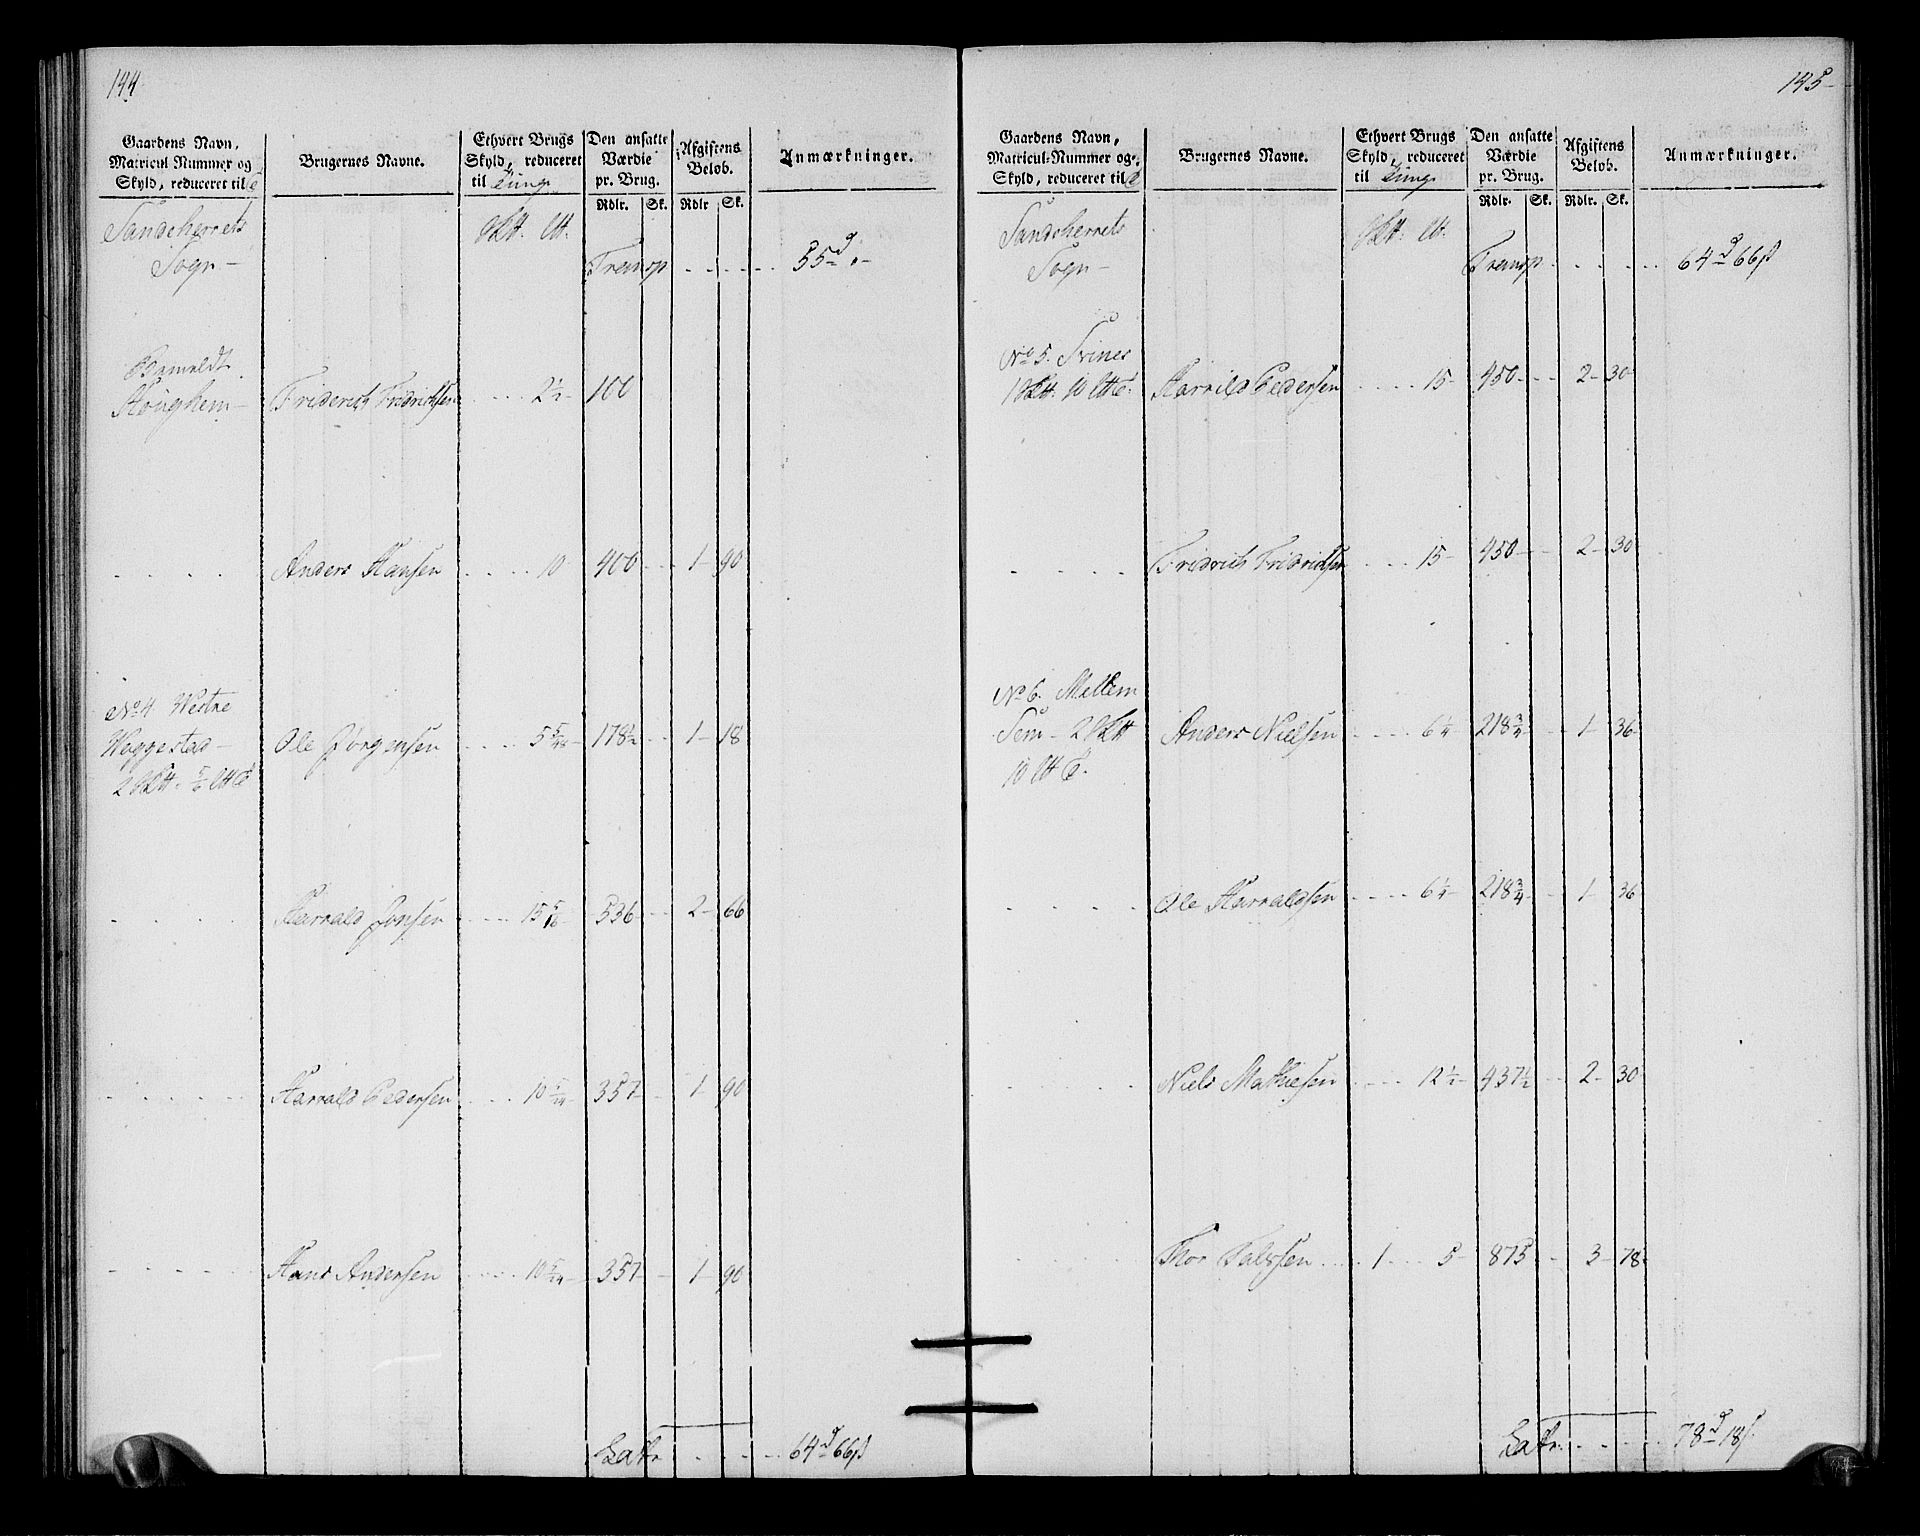 144.
Gaardens Navn,
Matricul Nummer og
Skyld, reduceret til
Brugernes Navne.
Ethvert Brugs
Skyld, reduceret
til Tunge
Den ansatte
Værdie
pr. Brug.
Rdlr. Sk.
Afgiftens
Beløb.
Rdlr Sk.
Anmærkninger.
Sandeherrets
Sogn –
Transp . . . . . 55 d
Bemeldt
Houghem – Friderich Fridrichsen . . . . 2½ – 100
. . . . Anders Hansen . . . . 10 400 . . . 1 – 90
No 4 Westre
Weggestad – Ole Jørgensen . . . . 5 5/48 – 178½ – 1 – 18
. . . . Harrald Jonsen . . . . 15 5/16 – 536 – 2 – 66
. . . . Harrald Pedersen . . . . 10 5/24 – 357 – 1 – 90
. . . . Hans Andersen . . . . 10 5/24 – 357 – 1 – 90
Latr. . . . . 64 d 66 ß
145
Gaardens Navn,
Matricul-Nummer og
Skyld, reduceret til
Brugernes Navne.
Ethvert Brugs
Skyld, reduceret
til Tunge
Den ansatte
Værdie
pr. Brug.
Rdlr. Sk.
Afgiftens
Beløb.
Rdlr. Sk.
Anmærkninger.
Sandeherrets
Sogn –
Transp . . . . . 64 d 66 ß
No 5. Svines
Harrild Pedersen . . . . 15 – 450 – . . 2 – 30
. . . . Fridrich Fridrichsen . . . . 15 – 450 – . . 2 – 30
No 6. Mellem
Sem – Anders Nielsen . . . . 6¼ – 218¾ – 1 – 36
. . . . Ole Harraldsen . . . . 6¼ – 218¾ – 1 – 36
. . . . Niels Mathiesen . . . . 12½ – 437½ – 2 – 30
. . . . Thor Salvsen . . . 1 . . . . 5 – 875 – 3 – 78
Latr. . . . . 78 d 18 ß